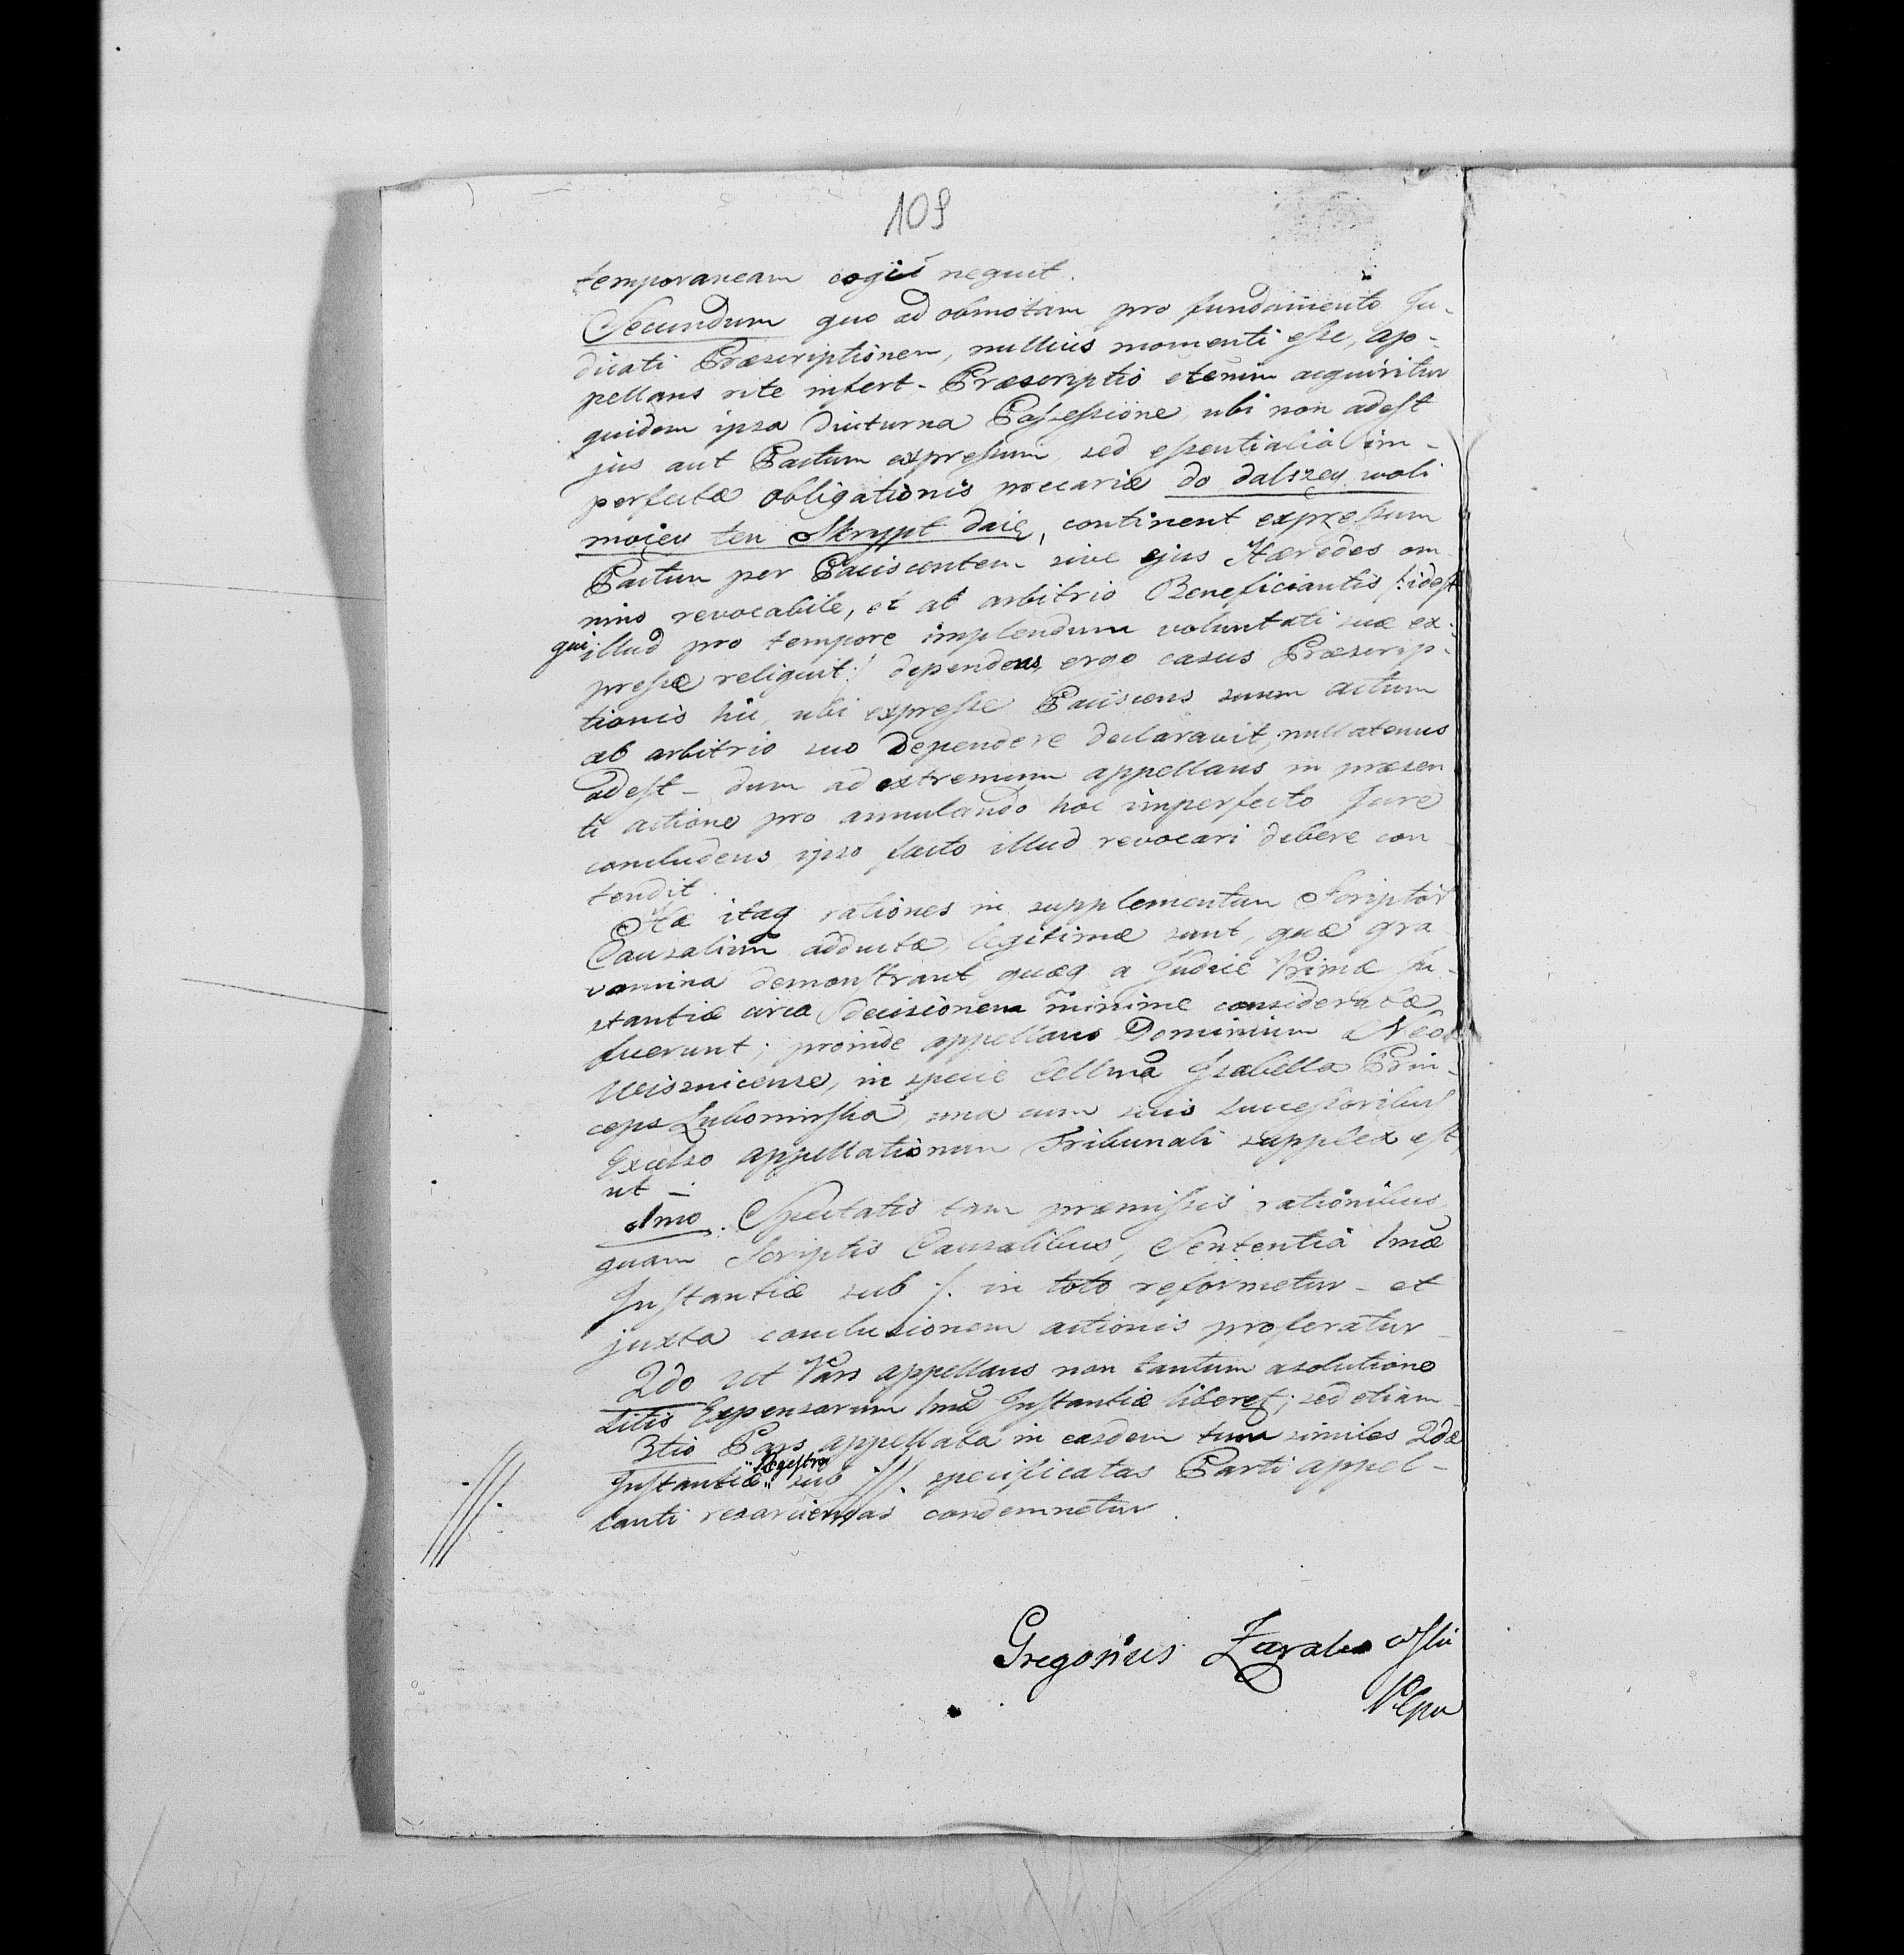 109
temporaneam cogi nequit.
Secundum quo ad obmotam pro fundamento Ju-
dicati Præscriptionem, nullius momenti eſse, ap-
pellans rite infert. Præscriptio etenim acquiritur
quidem ipsa diuturna Poſseſsione, ubi non adeſt
jus aut Pactum expreſsum, sed eſsentialia im-
perfectæ obligationis precariæ do dalszey woli
moiey ten Skrypt daię, continent expreſsum
Pactum per Paciscentem sive ejus Hæredes om-
nino revocabile, et ab arbitrio Beneficiantis /: ideſt
qui illud pro tempore implendum voluntati suæ ex-
preſsæ reliquit :/ dependens, ergo casus Præscrip-
tionis hic, ubi expreſse Paciscens suum actum
ab arbitrio suo dependere declaravit, nullatenus
adeſt – dum ad extremum appellans in præsen
ti actione pro annulando hoc imperfecto Jure
concludens ipso facto illud revocari debere con
tendit.
Hæ itaq rationes in supplementum Scriptor
Causalium adductæ, legitimæ sunt, quæ gra
vamina demonſtrant, quæq a Judice Primæ In-
stantiæ circa decisionem minime consideratæ
fuerunt; proinde appellans Dominium Neo
Wisznicense, in specie Cellma Isabella Prin-
ceps Lubomirſka, una cum suis succeſsoribus
Excelso appellationum Tribunali supplex eſt,
ut –
1mo. Spectatis tam præmiſsis rationibus
quam Scriptis Causalibus, Sententia 1mæ
Inſtantiæ sub /. in toto reformetur – et
juxta conclusionem actionis proferatur
2do ut Pars appellans non tantum a solutione
Litis Expensarum 1mæ Inſtantiæ liberet; sed etiam
3tio Pars appellata in easdem tum similes 2dæ
Regeſtro
Inſtantiæ sub ///. specificatas Parti appel-
///.
lanti resarciendas condemnetur.
Gregorius